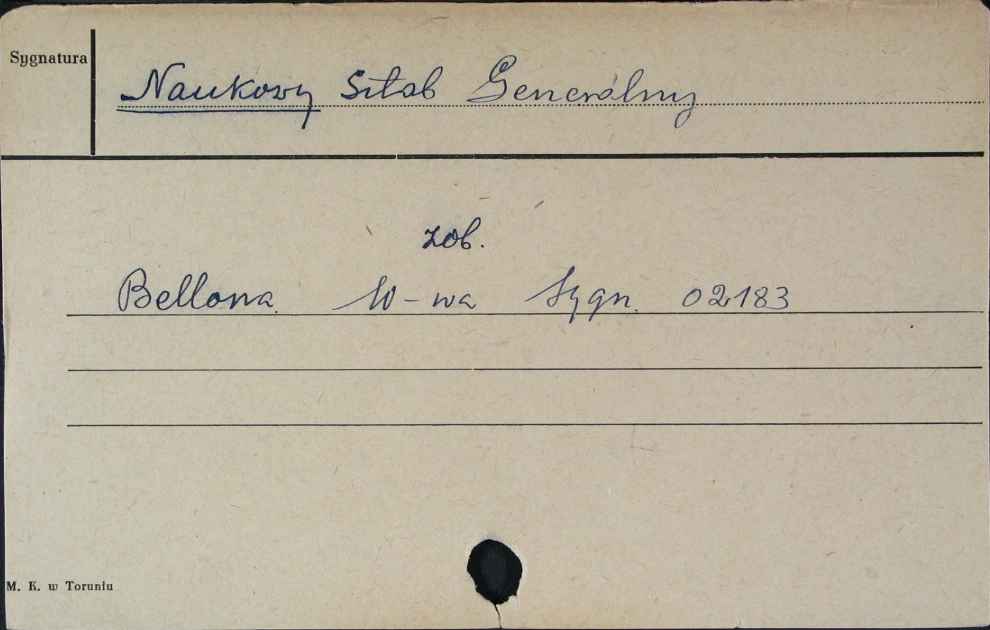 Sygnatura
Naukowy Sztab Generalny
zob.
Bellona W-wa Sygn. 02183
M. K. w Toruniu